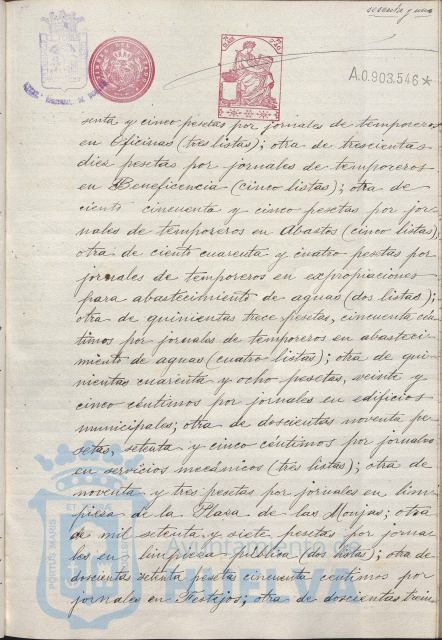 sesenta y uno
A.0.903.546*
senta y cinco pesetas por jornales de temporeros
en Oficinas (tres listas); otra de trescientas
diez pesetas por jornales de temporeros
en Beneficencia (cinco listas); otra de
ciento cincuenta y cinco pesetas por jor-
nales de temporeros en Abastos (cinco listas);
otra de ciento cuarenta y cuatro pesetas por
jornales de temporeros en expropiaciones
para abastecimiento de aguas (dos listas);
otra de quinientas trece pesetas, cincuenta cén-
timos por jornales de temporeros en abasteci-
miento de aguas (cuatro listas); otra de qui-
nientas cuarenta y ocho pesetas, veinte y
cinco céntimos por jornales en edificios
municipales; otra de doscientas noventa pe-
setas, setenta y cinco céntimos por jornales
en servicios mecánicos (tres listas); otra de
noventa y tres pesetas por jornales en lim-
pieza de la Plaza de las Monjas; otra
de mil setenta y siete pesetas por jorna-
les en limpieza pública (dos listas); otra de
doscientas setenta pesetas cincuenta céntimos por
jornales en Festejos; otra de doscientas trein-
PORTUS MARIS